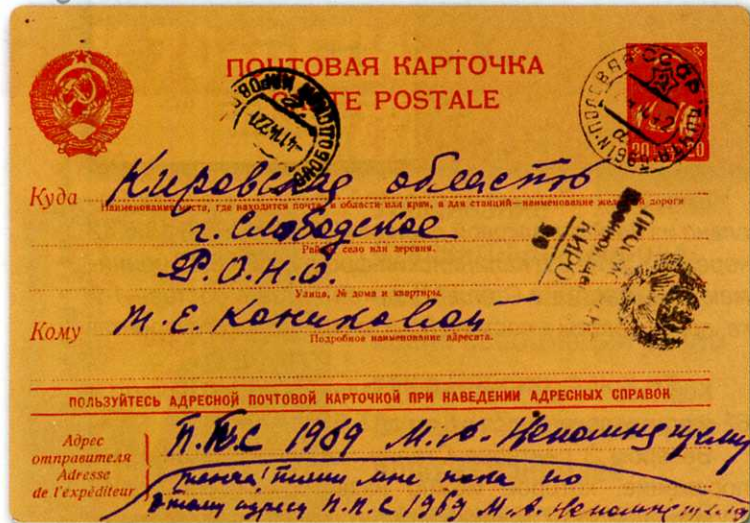 ПОЧТОВАЯ КАРТОЧКА
CARTE POSTALE
20 20
Куда Кировская область
Наименование места, где находится почта, и области или края, а для станций—наименование железной дороги
г. Слободское
Район, село или деревня.
Р.О.Н.О.
Улица, № дома и квартиры.
Кому Т. Е. Кониковой
Подробное наименование адресата.
ПОЛЬЗУЙТЕСЬ АДРЕСНОЙ ПОЧТОВОЙ КАРТОЧКОЙ ПРИ НАВЕДЕНИИ АДРЕСНЫХ СПРАВОК
Адрес отправителя
Adresse de l'expéditeur
П.П.С 1969 М. А. Непомнящему
пиши мне пока по
этому адресу П.П.С 1969 М. А. Непомнящему